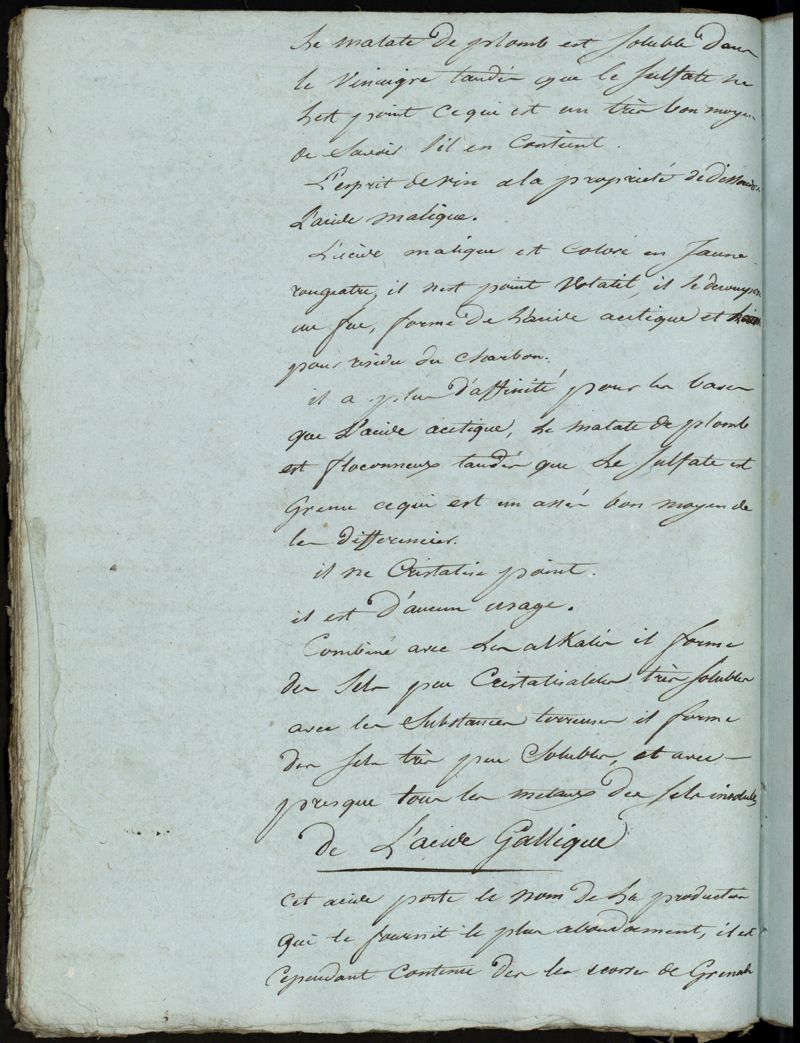 Le malate de plomb est soluble dans
le Vinaigre tandis que le sulfate ne
l'est point ce qui est un très bon moyen
de savoir s'il en Contient.
L'esprit de vin a la propriété de dissoudre
L'acide malique.
L'acide malique est coloré en Jaune
rougeatre, il n'est point Volatil, il se decompose
au feu, forme de L'acide acetique et
pour residu du charbon.
il a plus d'affinité pour les bases
que L'acide acetique, Le malate de plomb
est floconneux tandis que Le sulfate est
Grenu ce qui est un assés bon moyen de
les differencier.
il ne Cristalise point.
il est d'aucun usage.
Combiné avec Les alKalis il forme
des sels peu Cristalisables très solubles
avec les Substances terreuses il forme
des sels très peu Solubles, et avec
presque tous les metaux des sels insolubles
de L'acide Gallique
Cet acide porte le nom de La production
qui le fournit le plus abondament, il est
Cependant Contenu des les ecorses de Grenade